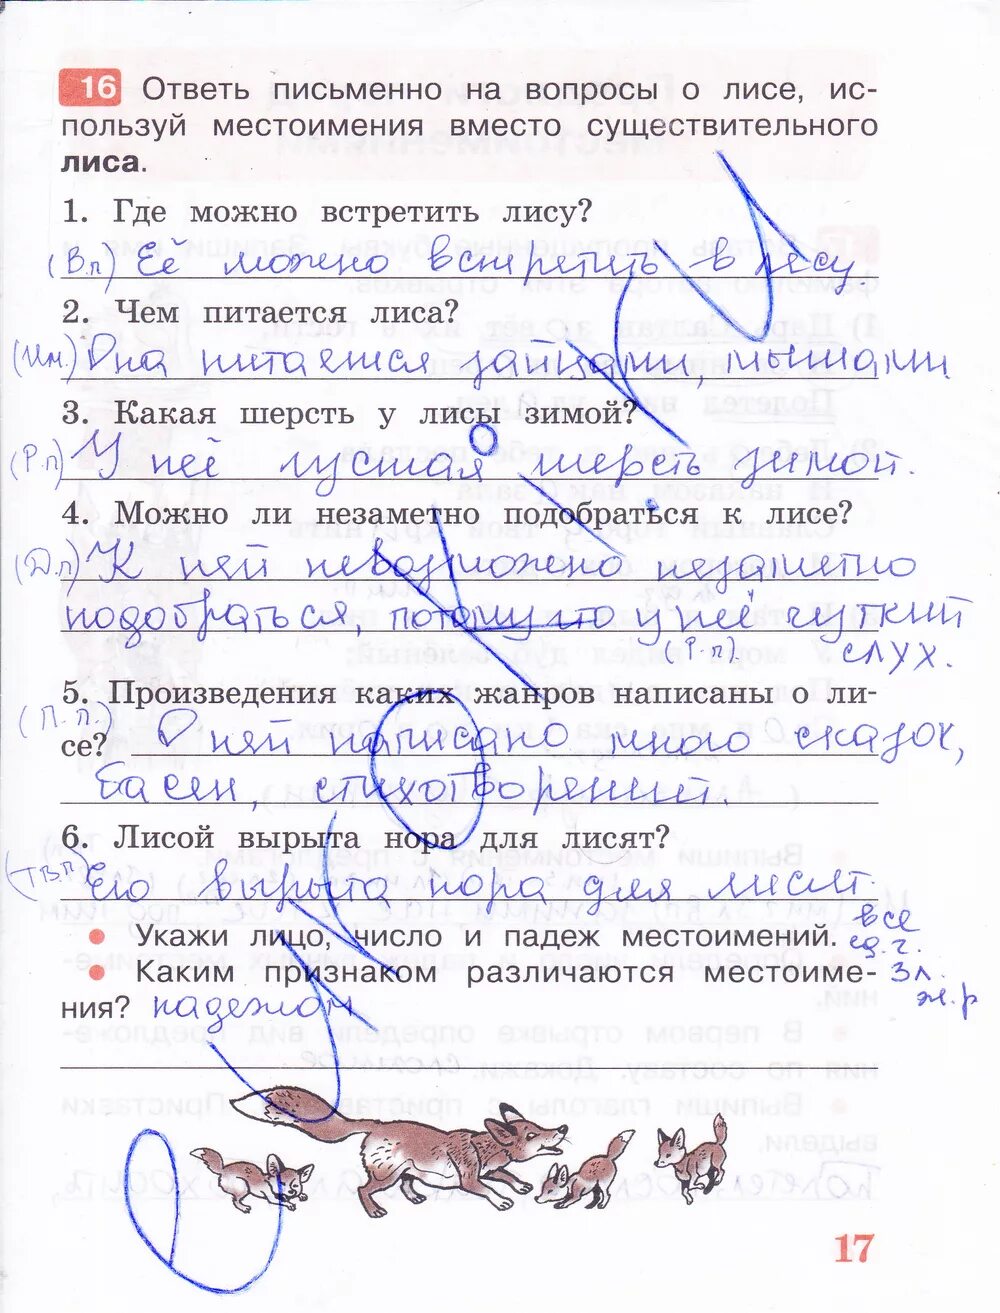 16 Ответь письменно на вопросы о лисе, ис-
пользуй местоимения вместо существительного
лиса.
1. Где можно встретить лису?
(В.п) Её можно встретить в лесу.
2. Чем питается лиса?
(Им.) Она питается зайцами, мышами.
3. Какая шерсть у лисы зимой?
(Р.п) У неё густая шерсть зимой.
4. Можно ли незаметно подобраться к лисе?
(Д.п) К ней невозможно незаметно
подобраться, потому что у неё чуткий
(Р.п). слух.
5. Произведения каких жанров написаны о ли-
(П.п.)
се? О ней написано много сказок,
басен, стихотворений.
6. Лисой вырыта нора для лисят?
(Тв.п) Ею вырыта нора для лисят.
все
• Укажи лицо, число и падеж местоимений. ед.ч.
• Каким признаком различаются местоиме- 3л.
ния? падежом ж.р
17